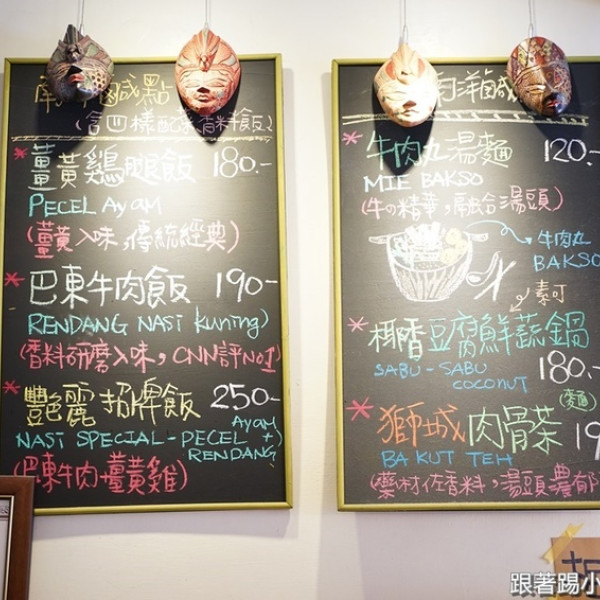 鹹點
(含四樣配菜香料飯)
*薑黃雞腿飯 180.-
PECEL Ayam
(薑黃入味,傳統經典)
*巴東牛肉飯 190-
RENDANG NASI Kuning)
(香料研磨入味,CNN評No1)
*艷麗招牌飯 250-
NASI SPECIAL-PECEL Ayam +) RENDANG
(巴東牛肉+薑黃雞)
南洋鹹
*牛肉丸湯麵 120.-
MIE BAKSO
(牛の精華,融合湯頭)
牛肉丸
BAKSO
素可
*椰香豆腐鮮蔬鍋
SABU-SABU COCONUT 180.-
(麵)
*獅城肉骨茶 19
BA KUT TEH
(藥材佐香料,湯頭濃郁
跟著踢小